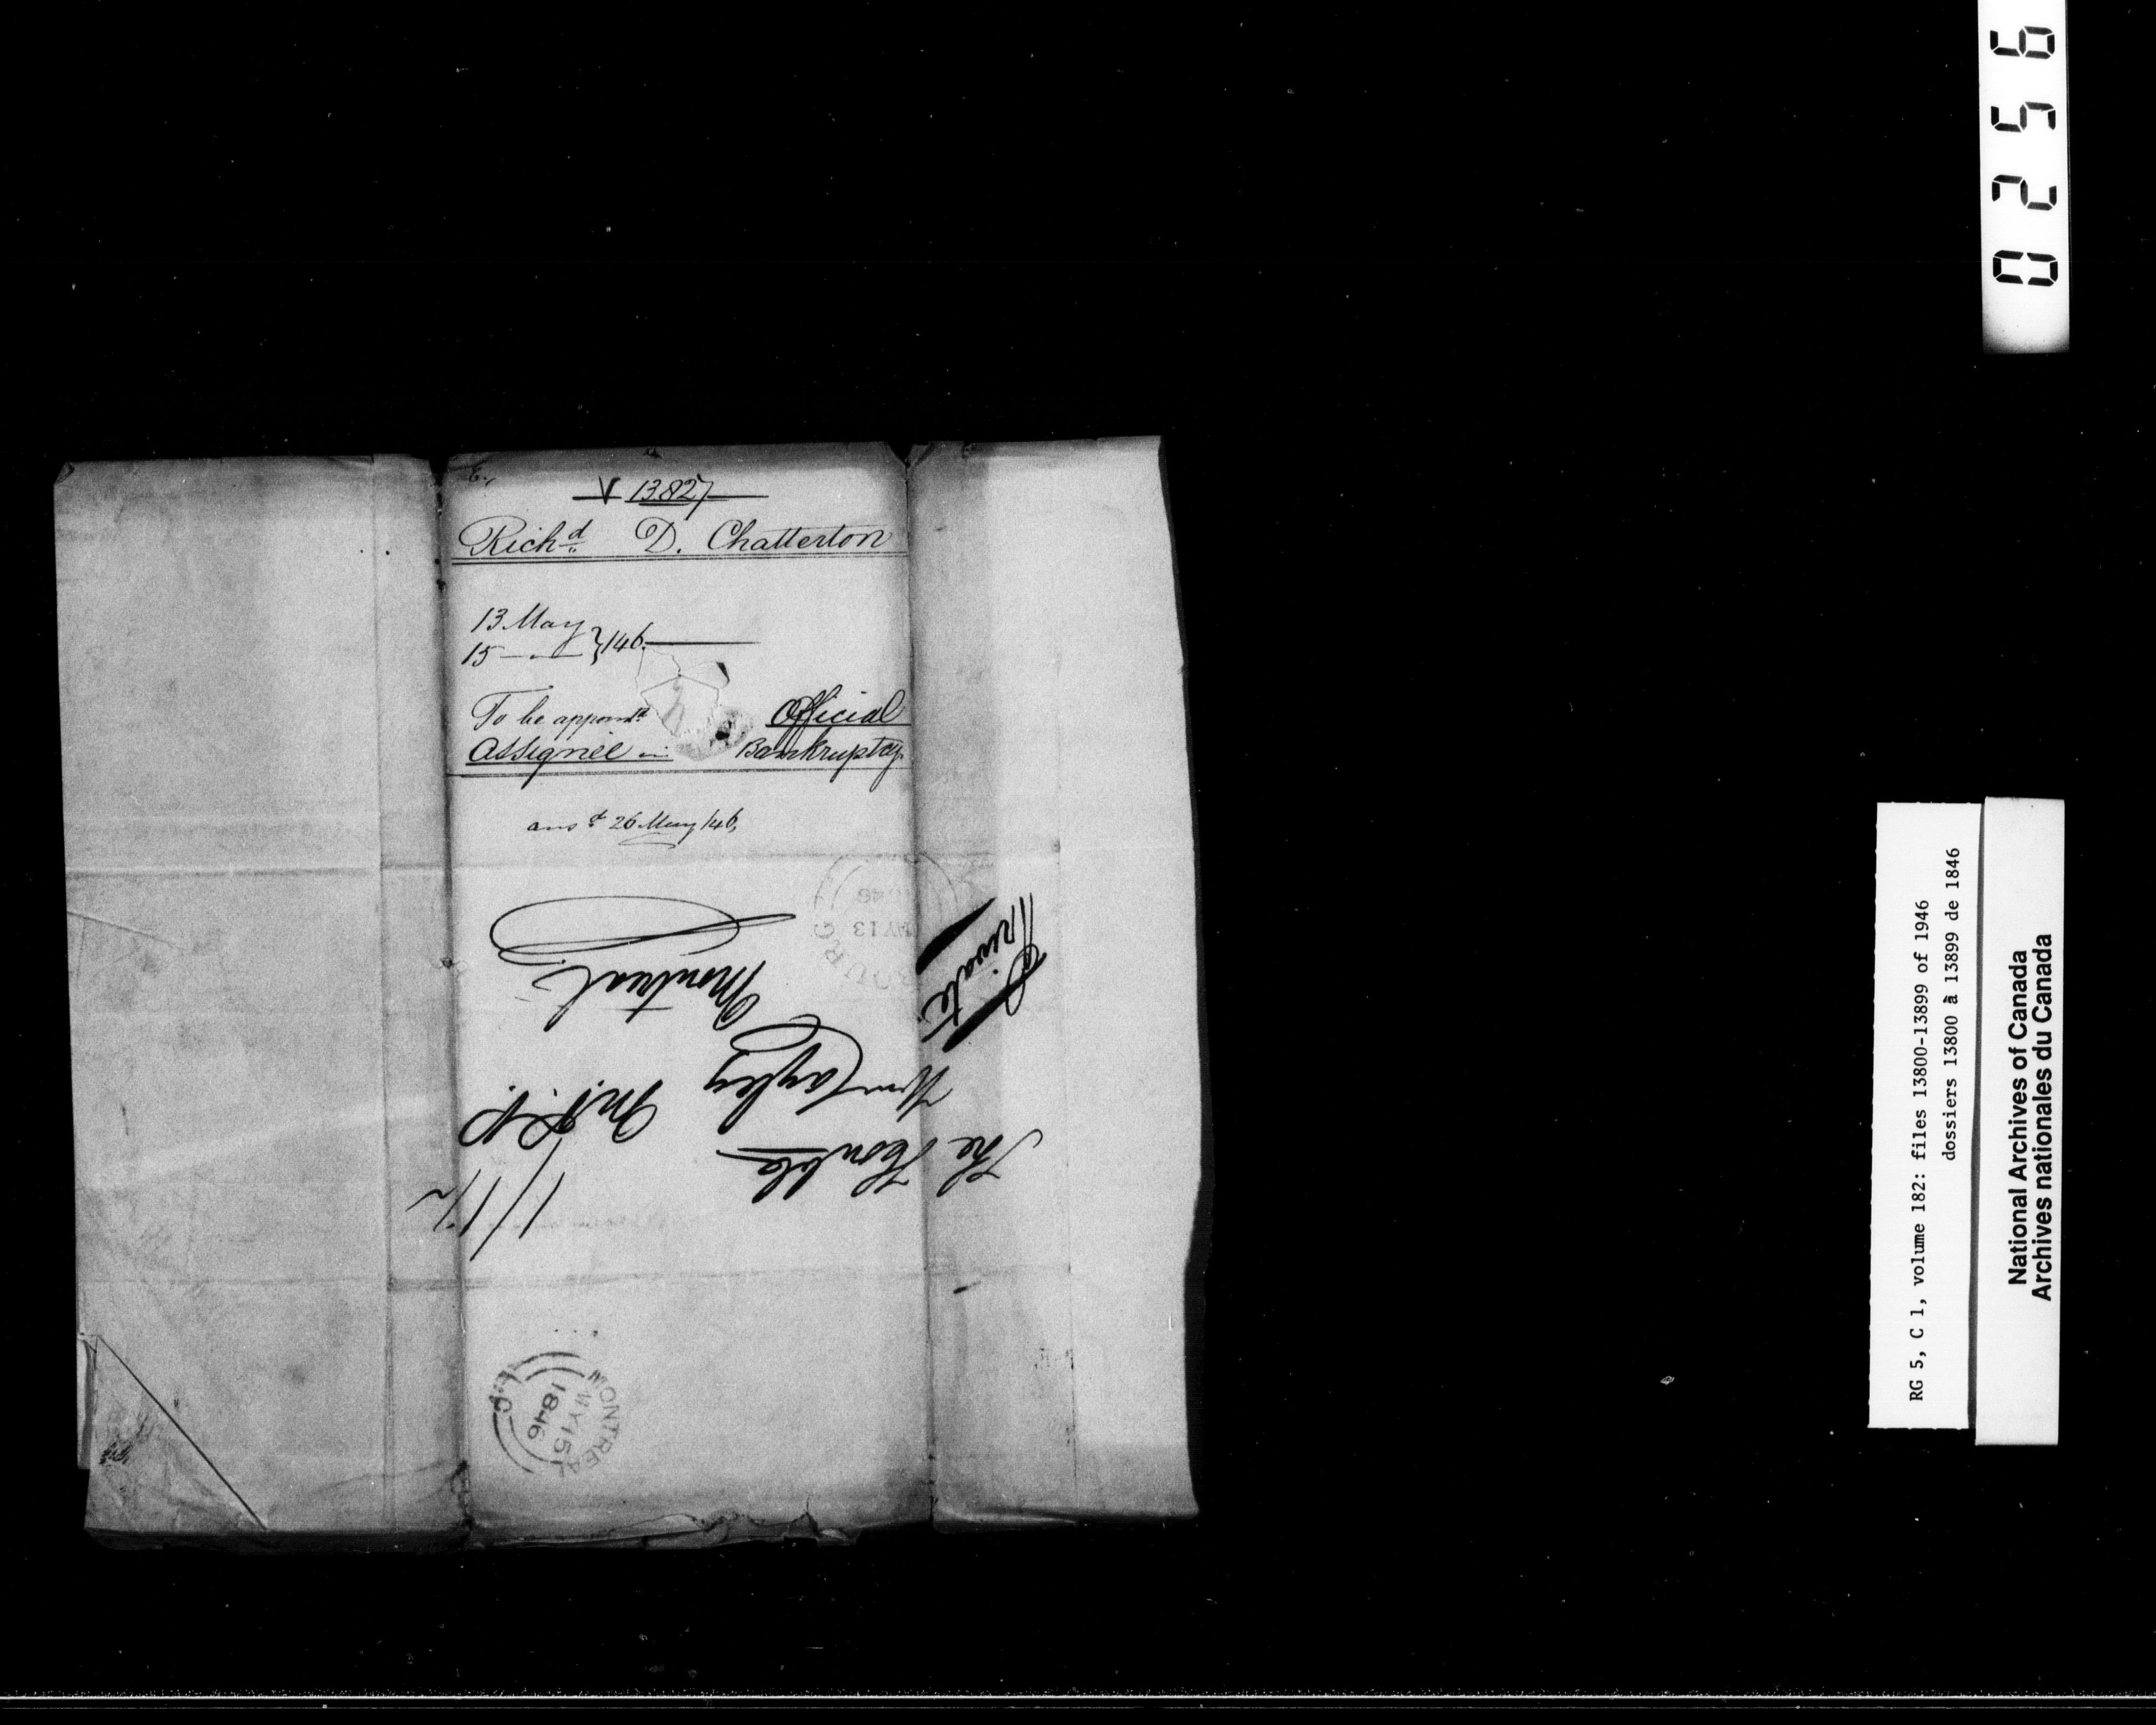 E.
V 13827
Richd. D. Chatterton
13 May
15 — „ — } /46.
To be appointd Official
Assignee in Bankruptcy.
ansd 26 May /46,
Private
The Honble
Wm Cayley M.P.P.
Montreal
1/1½
1846
MY 13
BOURG
MONTREAL
MY 15
1846
L.C.
0256
RG 5, C 1, volume 182: files 13800-13899 of 1946
dossiers 13800 à 13899 de 1846
National Archives of Canada
Archives nationales du Canada